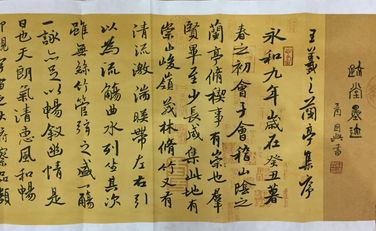 王羲之蘭亭集序
永和九年歲在癸丑暮
春之初會于會稽山陰之
蘭亭脩稧事也群
賢畢至少長咸集此地有
崇山峻嶺茂林脩竹又有
清流激湍暎帶左右引
以為流觴曲水列坐其次
雖無絲竹管弦之盛一觴
一詠亦足以暢叙幽情是
日也天朗氣清惠風和暢
仰觀宇宙之大俯察品類